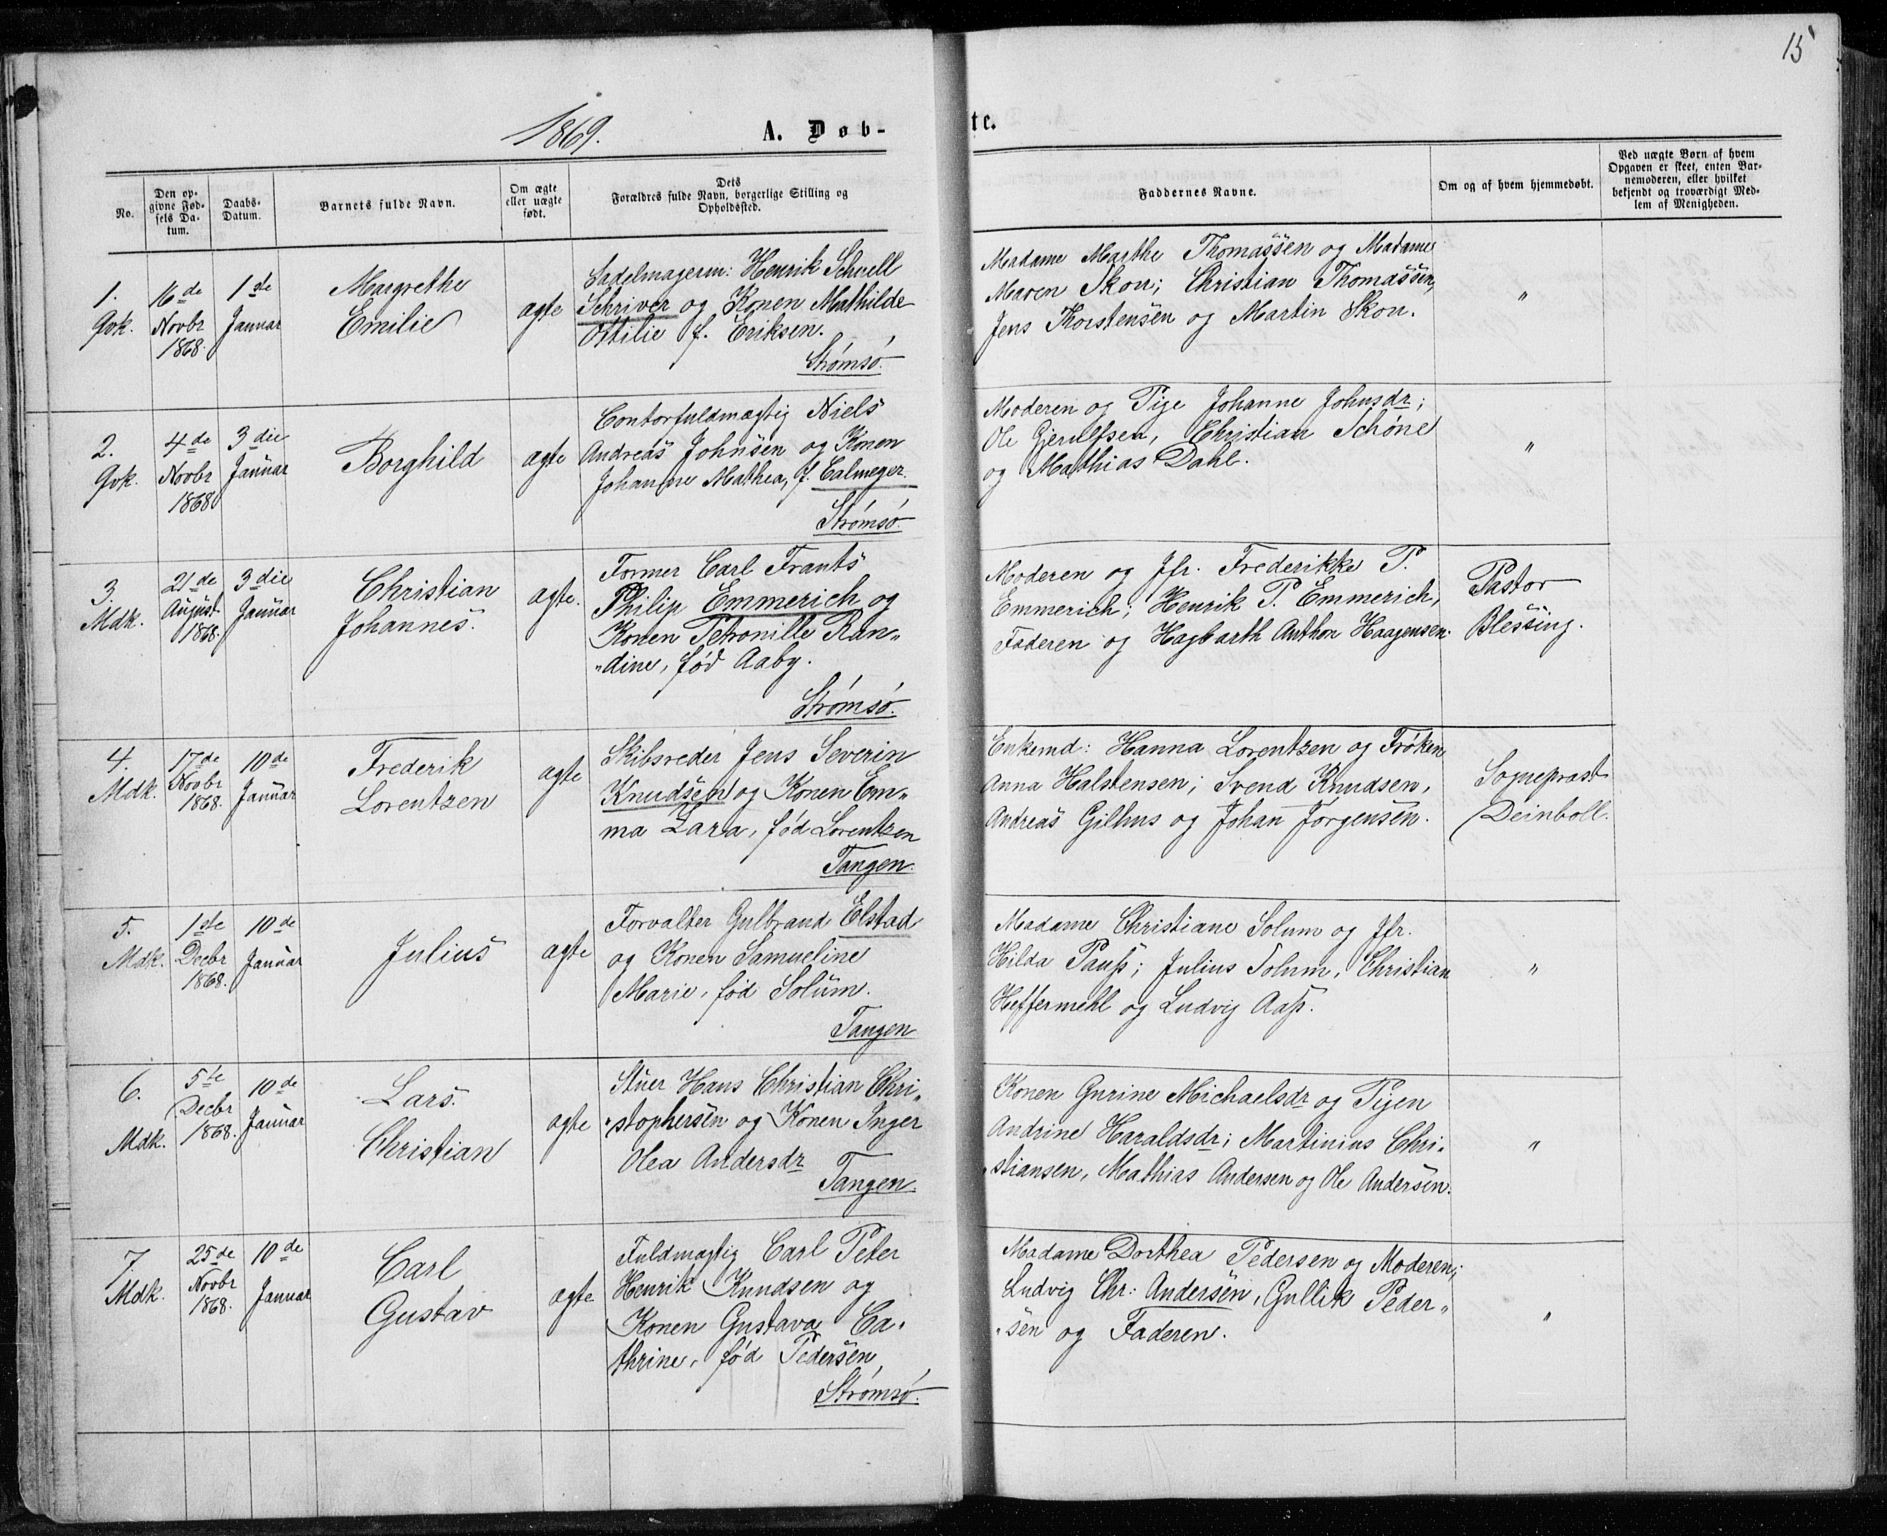 15
1869.
A. Døb-
te.
No.
Den op-
givne Fød-
sels Da-
tum.
Daabs-
Datum.
Barnets fulde Navn.
Om ægte
eller uægte
født.
Dets
Forældres fulde Navn, borgerlige Stilling og
Opholdssted.
Faddernes Navne.
Om og af hvem hjemmedøbt.
Ved uægte Børn af hvem
Opgaven er skeet, enten Bar-
nemoderen, eller hvilket
bekjendt og troværdigt Med-
lem af Menigheden.
1.
Qvk.
16de
Novbr
1868.
1ste
Januar
Margrethe
Emilie
ægte
Sadelmagerm: Henrik Schnell
Schriver og Konen Mathilde
Ottilie f. Eriksen.
Strømsø.
Madame Marthe Thomassen og Madame
Maren Skou; Christian Thomassen,
Jens Thorstensen og Martin Skou.
"
2.
Qvk.
4de
Novbr
1868
3die
Januar
Borghild
ægte
Contorfuldmægtig Niels
Andreas Johnsen og Konen
Johanne Mathea, f. Calmeyer
Strømsø.
Moderen og Pige Johanne Johnsdr;
Ole Gjerulfsen, Christian Schöne
og Mathias Dahl.
"
3.
Mdk.
21de
August
1868.
3die
Januar
Christian
Johannes.
ægte.
Former Carl Frants
Philip Emmerich og
Konen Petronille Ran„
„dine, født Aaby.
Strømsø.
Moderen og Jfr. Frederikke P.
Emmerich; Henrik P. Emmerich,
Faderen og Hagbarth Anthon Haagensen.
Pastor
Blessing.
4.
Mdk.
17de
Novbr
1868.
10de
Januar
Frederik
Lorentzen
ægte
Skibsreder Jens Severin
Knudsen og Konen Em„
ma Zara, født Lorentzen
Tangen.
Enkemd: Hanna Lorentzen og Frøken
Anna Halstensen; Svend Knudsen,
Andreas Gilhus og Johan Jørgensen.
Sogneprast
Deinboll.
5.
Mdk.
1ste
Decbr
1868.
10de
Januar
Julius
ægte
Forvalter Gulbrand Elstad
og Konen Samueline
Marie, født Solum.
Tangen
Madame Christiane Solum og Jfr.
Hilda Pauss; Julius Solum, Christian
Heffermehl og Ludvig Aass.
"
6.
Mdk.
5te
Decbr
1868.
10de
Januar
Lars
Christian
ægte
Stuer Hans Christian Chri„
„stophersen og Konen Inger
Olea Andersdr
Tangen.
Konen Gurine Michaelsdr og Pigen
Andrine Haraldsdr; Martinius Chri„
„stiansen, Mathias Andersen og Ole Andersen.
"
7.
Mdk.
25de
Novbr
1868.
10de
Januar
Carl
Gustav
ægte
Fuldmægtig Carl Peter
Henrik Knudsen og
Konen Gustava Ca„
thrine, født Pedersen
Strømsø.
Madame Dorthea Pedersen og Moderen;
Ludvig Chr: Andersen, Gullik Peder„
„sen og Faderen.
"